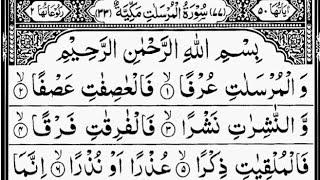 اٰیَاتُهَا ۵۰ (۷۷) سُوْرَةُ الْمُرْسَلٰتِ مَكِّیَّةٌ (۳۳) رُكُوْعَاتُهَا ۲
بِسْمِ اللّٰهِ الرَّحْمٰنِ الرَّحِیْمِ
وَ الْمُرْسَلٰتِ عُرْفًا ۱ فَالْعٰصِفٰتِ عَصْفًا ۲
وَّ النّٰشِرٰتِ نَشْرًا ۳ فَالْفٰرِقٰتِ فَرْقًا ۴
فَالْمُلْقِیٰتِ ذِكْرًا ۵ عُذْرًا اَوْ نُذْرًا ۶ اِنَّمَا